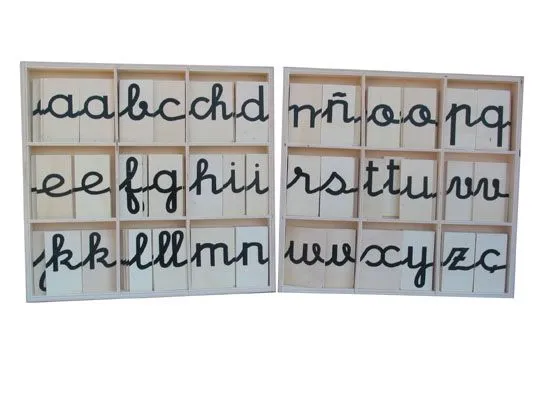 a a b c ch d
e e f g h i i
k k l ll m n
n ñ o o p q
r s t t u v v
w v x y z ç